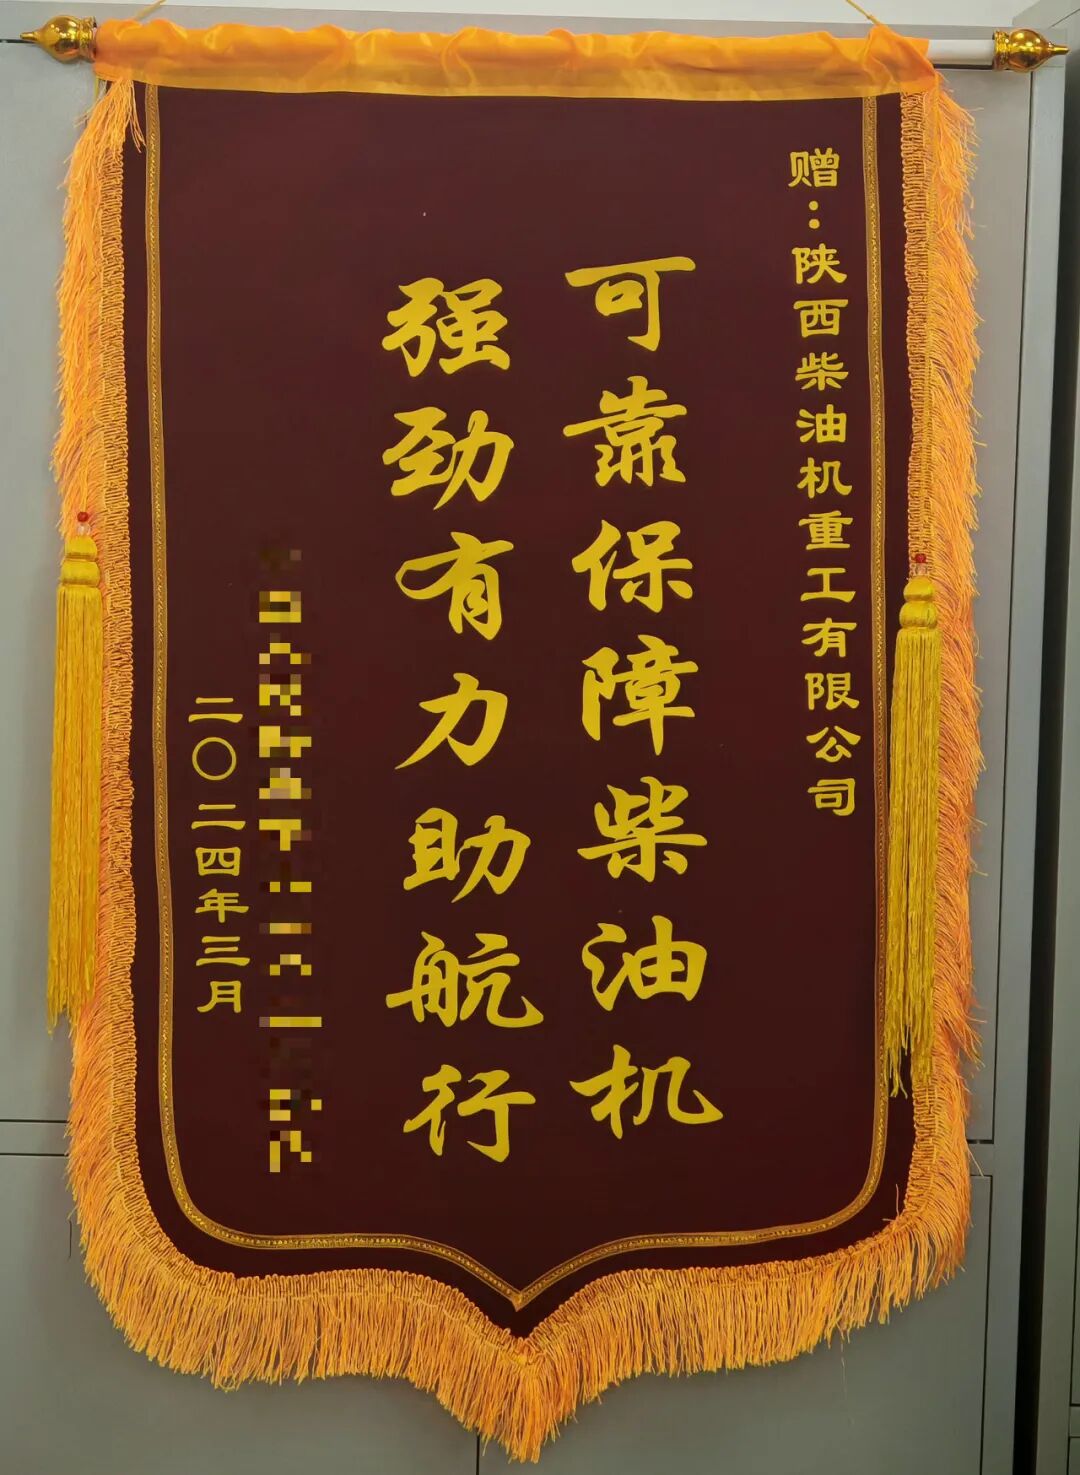 赠：陕西柴油机重工有限公司
可靠保障柴油机
强劲有力助航行
二〇二四年三月